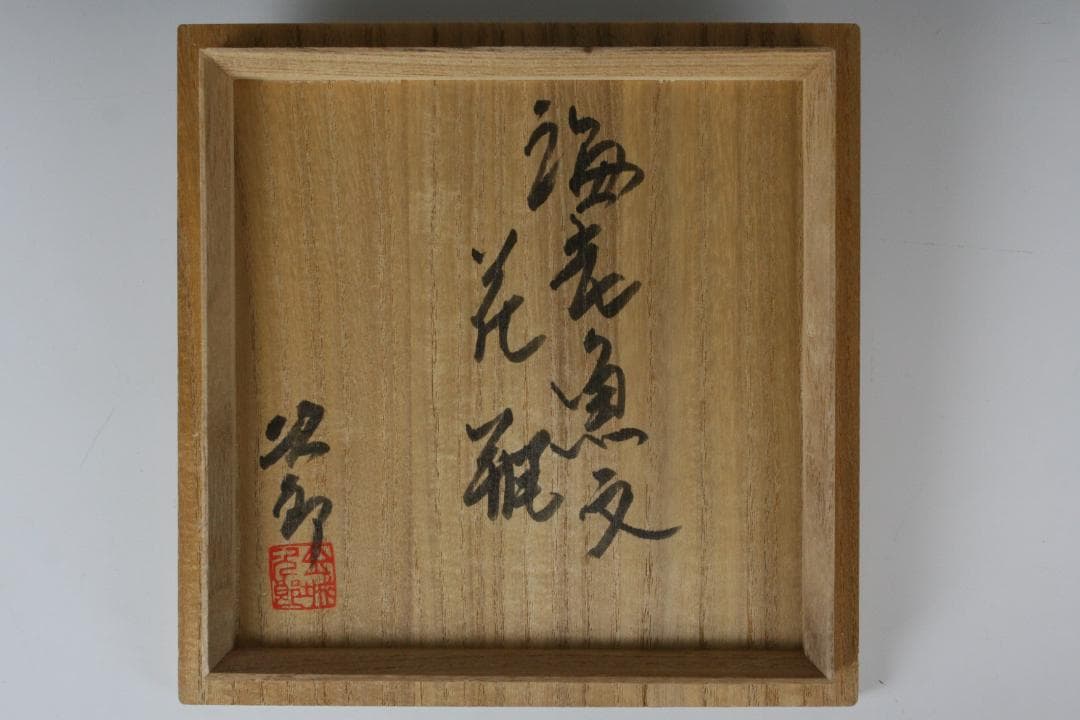 海老魚文
花瓶
次郎